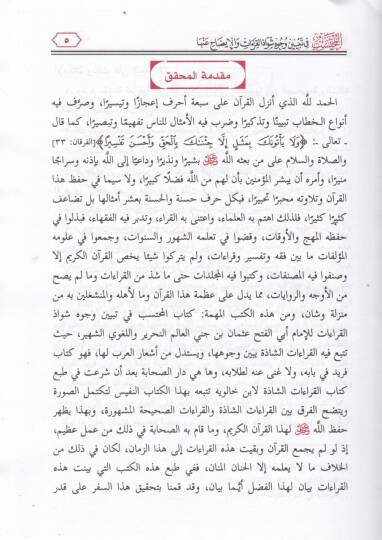 المحتسب في تبيين وجوه شواذ القراءات والإيضاح عنها
٥
مقدمة المحقق
الحمد للَّه الذي أنزل القرآن على سبعة أحرف إعجازًا وتيسيرًا، وصرَّف فيه
أنواع الخطاب تبيينًا وتذكيرًا وضرب فيه الأمثال للناس تفهيمًا وتبصيرًا، كما قال
ـ تعالى ـ: ﴿وَلَا يَأْتُونَكَ بِمَثَلٍ إِلَّا جِئْنَاكَ بِالْحَقِّ وَأَحْسَنَ تَفْسِيرًا﴾ [الفرقان: ٣٣]
والصلاة والسلام على من بعثه اللَّه ﷺ بشيرًا ونذيرًا وداعيًا إلى اللَّه بإذنه وسراجًا
منيرًا، وأمره أن يبشر المؤمنين بأن لهم من اللَّه فضلًا كبيرًا، ولا سيما في حفظ هذا
القرآن وتلاوته محبرًا تحبيرًا، فبكل حرف حسنة والحسنة بعشر أمثالها بل تضاعف
كثيرًا كثيرًا، فلذلك اهتم به العلماء، واعتنى به القراء، وتدبر فيه الفقهاء، فبذلوا في
حفظه المهج والأوقات، وقضوا في تعلمه الشهور والسنوات، وجمعوا في علومه
المؤلفات ما بين فقه وتفسير وقراءات، ولم يتركوا شيئا يخص القرآن الكريم إلا
وصنفوا فيه المصنفات، وكتبوا فيه المجلدات حتى ما شذ من القراءات وما لم يصح
من الأوجه والروايات، مما يدل على عظمة هذا القرآن وما لأهله والمنشغلين به من
منزلة وشان، ومن هذه الكتب المهمة: كتاب المحتسب في تبيين وجوه شواذ
القراءات للإمام أبي الفتح عثمان بن جني العالم النحرير واللغوي الشهير، حيث
تتبع فيه القراءات الشاذة يبين وجوهها، ويستدل من أشعار العرب لها، فهو كتاب
فريد في بابه، ولا غنى عنه لطلابه، وها هي دار الصحابة بعد أن شرعت في طبع
كتاب القراءات الشاذة لابن خالويه تتبعه بهذا الكتاب النفيس لتكتمل الصورة
ويتضح الفرق بين القراءات الشاذة والقراءات الصحيحة المشهورة، وبهذا يظهر
حفظ اللَّه لهذا القرآن الكريم، وما قام به الصحابة في ذلك من عمل عظيم،
إذ لو لم يجمع القرآن وبقيت هذه القراءات إلى هذا الزمان، لكان في ذلك من
الخلاف ما لا يعلمه إلا الحنان المنان، ففي طبع هذه الكتب التي بينت هذه
القراءات بيان لهذا الفضل أيُّما بيان، وقد قمنا بتحقيق هذا السفر على قدر